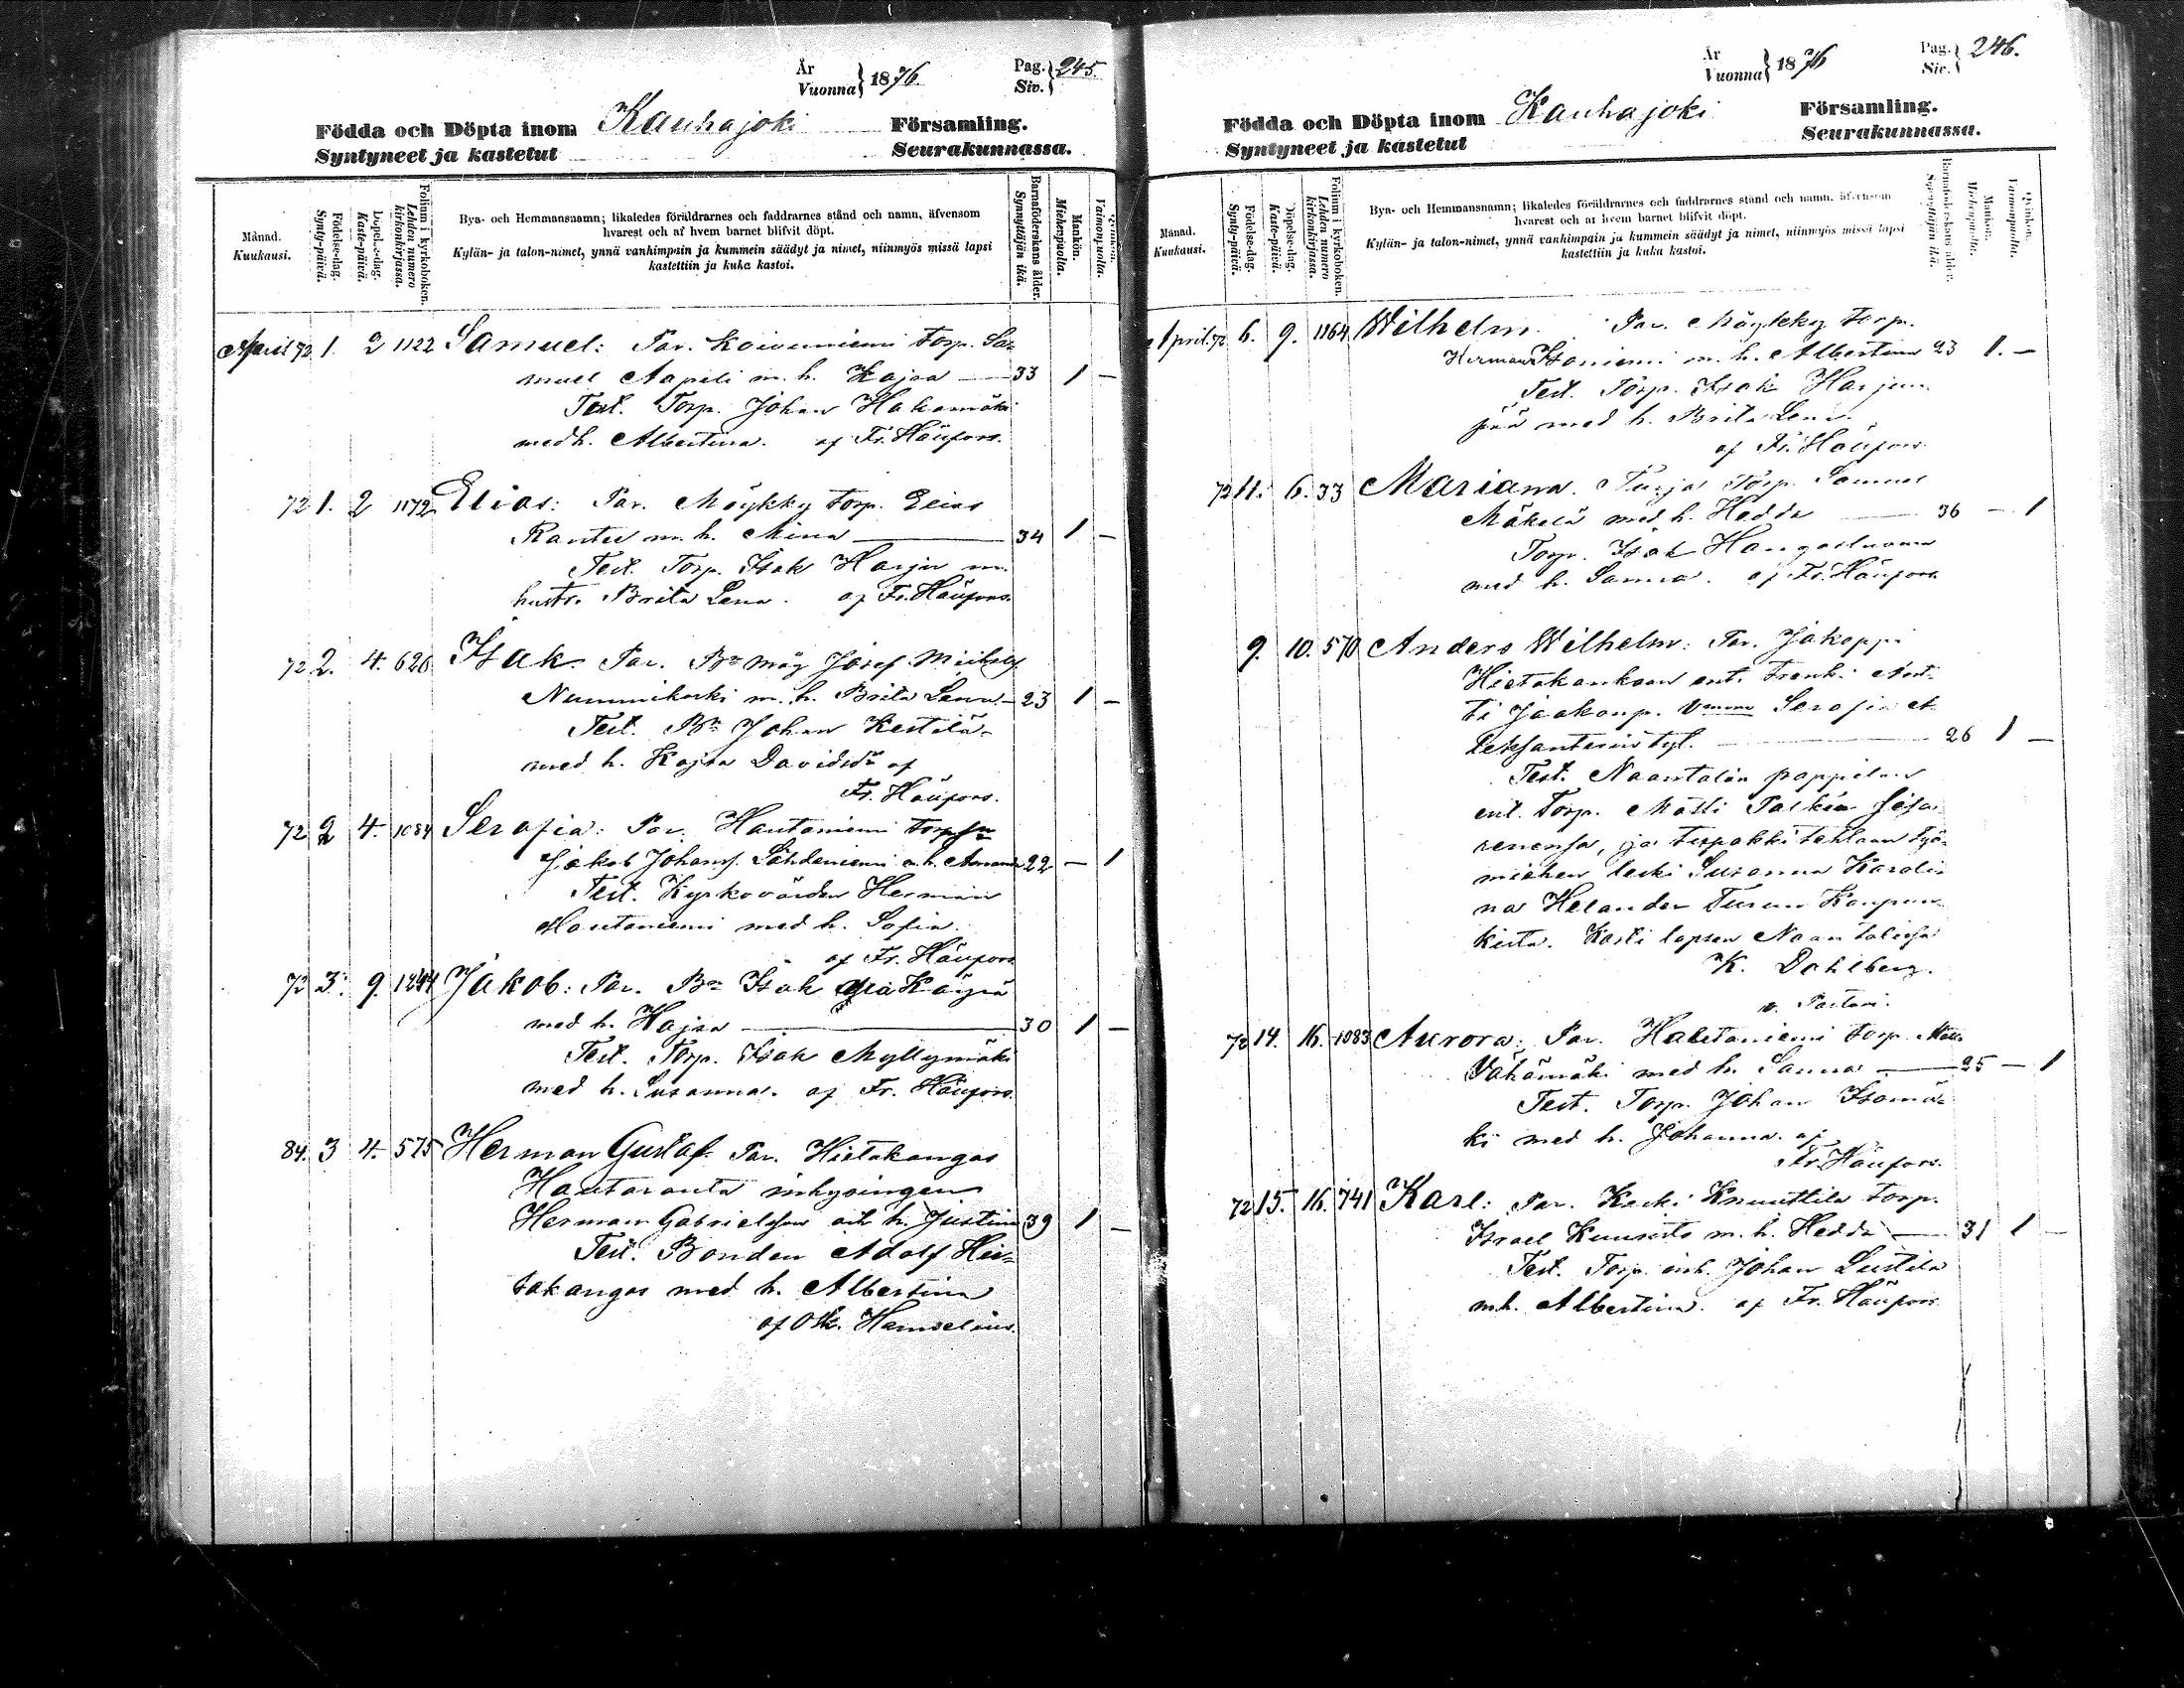 År
Vuonna } 1876.
Pag.
Siv. } 245.
Födda och Döpta inom Kauhajoki Församling.
Syntyneet ja kastetut Seurakunnassa.
Månad.
Kuukausi.
Födelse-dag.
Synty-päivä.
Döpelse-dag.
Kaste-päivä.
Folium i kyrkoboken.
Lehden numero
kirkonkirjassa.
Bya- och Hemmansnamn; likaledes föräldrarnes och faddrarnes stånd och namn, äfvensom
hvarest och af hvem barnet blifvit döpt.
Kylän- ja talon-nimet, ynnä vanhimpain ja kummein säädyt ja nimet, niinmyös missä lapsi
kastettiin ja kuka kastoi.
Barnaföderskans ålder.
Synnyttäjän ikä.
Mankön.
Miehenpuolta.
Qvinkön.
Vaimonpuolta.
April 72 1. 2 1122 Samuel: Par. Koivuniemi torp. Sa-
muel Aapeli m. h. Kajsa — 33 1 —
Test. Torp. Johan Hakamäki
med h. Albertina. af Fr. Häüfors.
72 1. 2 1172 Elias: Par. Möykky torp. Elias
Rantee m. h. Mina — 34 1 —
Test. Torp. Isak Harju m.
hustr. Brita Lena. af Fr. Häüfors.
72 2. 4. 626 Isak. Par. Bn måg Josef
Nummikoski m. h. Brita Lena — 23 1 —
Test. Bn Johan Kestilä
med h. Kajsa Davidsdr af
Fr. Häüfors.
72 2 4. 1084 Serafia: Par. Hautaniemi torpsn
Jakob Johans. Lähdeniemi o. h. Amanda 22 — 1
Test. Kyrkovärden Herman
Hautaniemi med h. Sofia.
af Fr. Häüfors
72 3. 9. 1294 Jakob: Par. Bn Isak Käyrä
med h. Kajsa — 30 1 —
Test. Torp. Isak Myllymäki
med h. Susanna. af Fr. Häüfors.
84. 3 4. 575 Herman Gustaf. Par. Hietakangas
Hautaranta inhysingen
Herman Gabrielsson och h. Justina 39 1 —
Test. Bonden Adolf Hie-
takangas med h. Albertina
af Hamselius.
År
Vuonna } 1876
Pag.
Siv. } 246.
Födda och Döpta inom Kauhajoki Församling.
Syntyneet ja kastetut Seurakunnassa.
Månad.
Kuukausi.
Födelse-dag.
Synty-päivä.
Döpelse-dag.
Kaste-päivä.
Folium i kyrkoboken.
Lehden numero
kirkonkirjassa.
Bya- och Hemmansnamn; likaledes föräldrarnes och faddrarnes stånd och namn, äfvensom
hvarest och af hvem barnet blifvit döpt.
Kylän- ja talon-nimet, ynnä vanhimpain ja kummein säädyt ja nimet, niinmyös missä lapsi
kastettiin ja kuka kastoi.
Barnaföderskans ålder.
Synnyttäjän ikä.
Mankön.
Miehenpuolta.
Qvinkön.
Vaimonpuolta.
April 72 6. 9. 1164 Wilhelm. Par. Möykky torp.
Herman Isoniemi m. h. Albertina 23 1. —
Test. Torp. Isak Harjun
pää med h. Brita Lena.
af Fr. Häüfors
72 11. 6. 33 Mariana. Turja Torp. Samuel
Mäkelä med h. Hedda — 36 — 1
Torp. Isak Hangasluoma
med h. Sanna. af Fr. Häüfors.
9. 10. 570 Anders Wilhelm: Par. Jakoppi
Hietakankaan ent. trenki Ant-
ti Jaakonp. Vmonsa Serafia A-
leksanterin tyt. — 26 1 —
Test. Naantalin pappilan
ent. torp. Matti
ja tupakki tehtaan työ-
miehen leski Susanna Karoli-
na Helander Turun Kaupun-
kista. Kasti lapsen Naantalissa
K. Dahlberg.
v. Pastori.
72 14. 16. 1083 Aurora: Par. Hautaniemi torp. Matts
Vähämäki med h. Sanna — 25 — 1
Test. Torp. Johan Isomä-
ki med h. Johanna. af
Fr. Häüfors.
72 15. 16. 741 Karl: Par. Koski Knuuttila torp.
Israel Kuusisto m. h. Hedda — 31 1 —
Test. Torp. enk. Johan Lustila
m. h. Albertina. af Fr. Häüfors